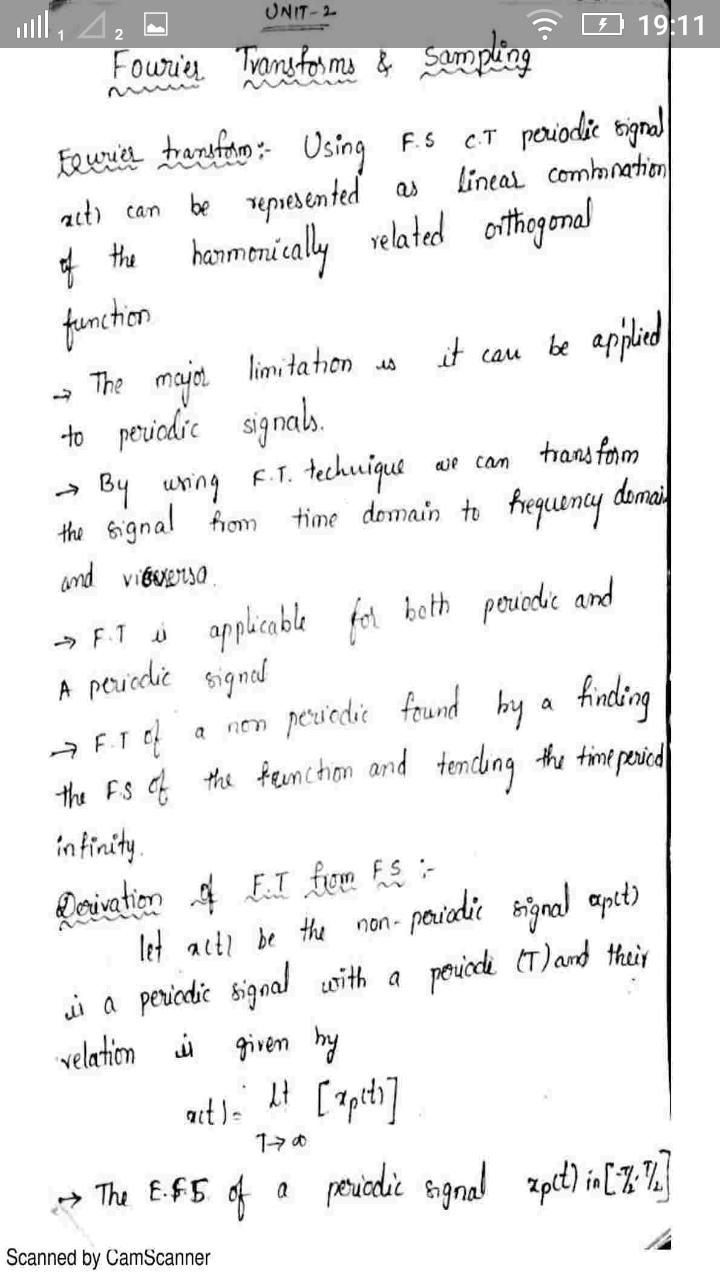 UNIT-2
1 2 19:11
Fourier Transforms & Sampling
Fourier transform:- Using F.S C.T periodic signal
x(t) can be represented as linear combination
of the harmonically related orthogonal
function
→ The major limitation is it can be applied
to periodic signals.
→ By using F.T. technique we can transform
the signal from time domain to frequency domain
and viceversa.
→ F.T is applicable for both periodic and
A periodic signal
→ F.T of a non periodic found by a finding
the F.S of the function and tending the time period
infinity.
Derivation of F.T from F.S :-
let x(t) be the non-periodic signal xp(t)
is a periodic signal with a periodi (T) and their
relation is given by
x(t) = Lt [xp(t)]
T→∞
→ The E.F.S of a periodic signal xp(t) in [-T/2, T/2]
Scanned by CamScanner